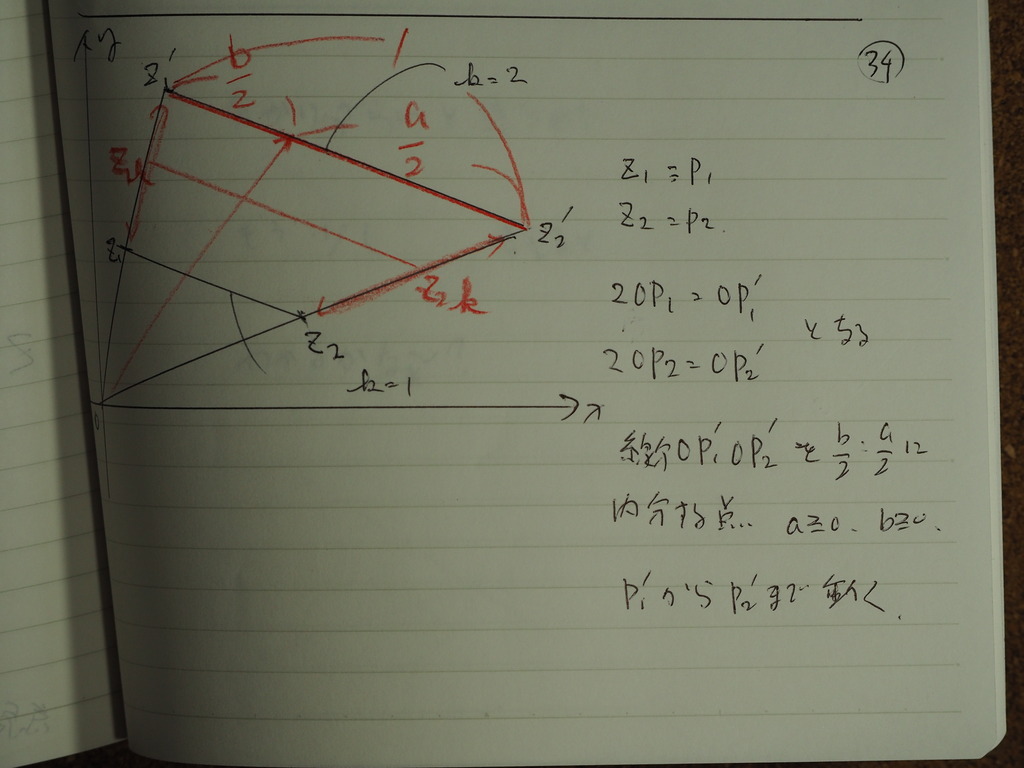 34
y
z1'
b/2
1
k=2
a/2
z1k
z2'
z1
z2k
z2
k=1
x
0
z1 = P1
z2 = P2.
2OP1 = OP1'
とする
2OP2 = OP2'
線分OP1'OP2'を b/2 : a/2 に
内分する点. a≧0. b≧0.
P1'からP2'まで動く.